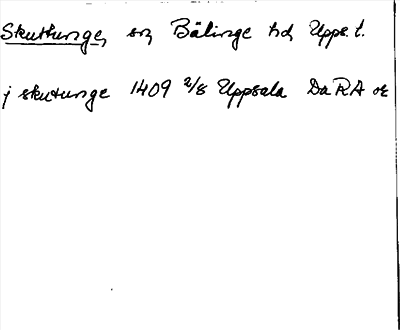 Skuttunge, sn, Bälinge hd, Upps. l.
j skutunge 1409 2/8 Uppsala Da RA or